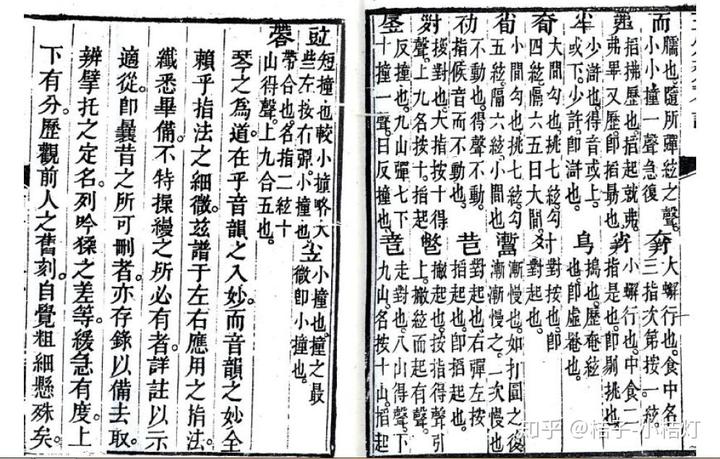 而 臑也隨所彈絃之聲。
小小撞一聲急復
大蠏行也。食中名
三指次第按一絃。
指拂歷也。搯起就弗。
弗畢又歷卽搯曷也
小蠏行也。中食二
指是也。卽剔挑也
半 少許也得音或上。
或下少許。卽滸也。
搗也。歷卷絃
也。卽虛罨也。
大間勾也。挑七絃勾
四絃隔六五曰大間。
对 對按也。卽
對起也。
省 小間勾也挑七絃勾
五絃隔六絃。小間也
漸慢也。如打圓之後
漸漸慢之。一次慢也
不動也。得聲不動。
指候音而不動也。
對起也。右彈左按
搯起也。卽搯起也
對 按對也。大指按十得
聲。上九名按十。指起
撇起也。按指得聲引
上。撇絃而起有聲
反撞也。九山彈七下
十撞一聲。曰反撞也
走對也。八山得聲下
九山。名按十山。指起
短撞也較小撞略大
些左按右彈。小撞也。
小撞也。撞之最
微卽小撞也。
帶合也名指二絃十
山得聲。上九合五也。
琴之爲道在乎音韻之入妙而音韻之妙全
賴乎指法之細微茲譜于左右應用之指法。
纖悉畢備。不特操縵之所必有者詳註以示
適從。卽曩昔之所可刪者。亦存錄以備去取。
辨擘托之定名。列吟猱之差等。緩急有度。上
下有分。歷觀前人之舊刻。自覺粗細懸殊矣。
知乎 @桔子·小桔灯